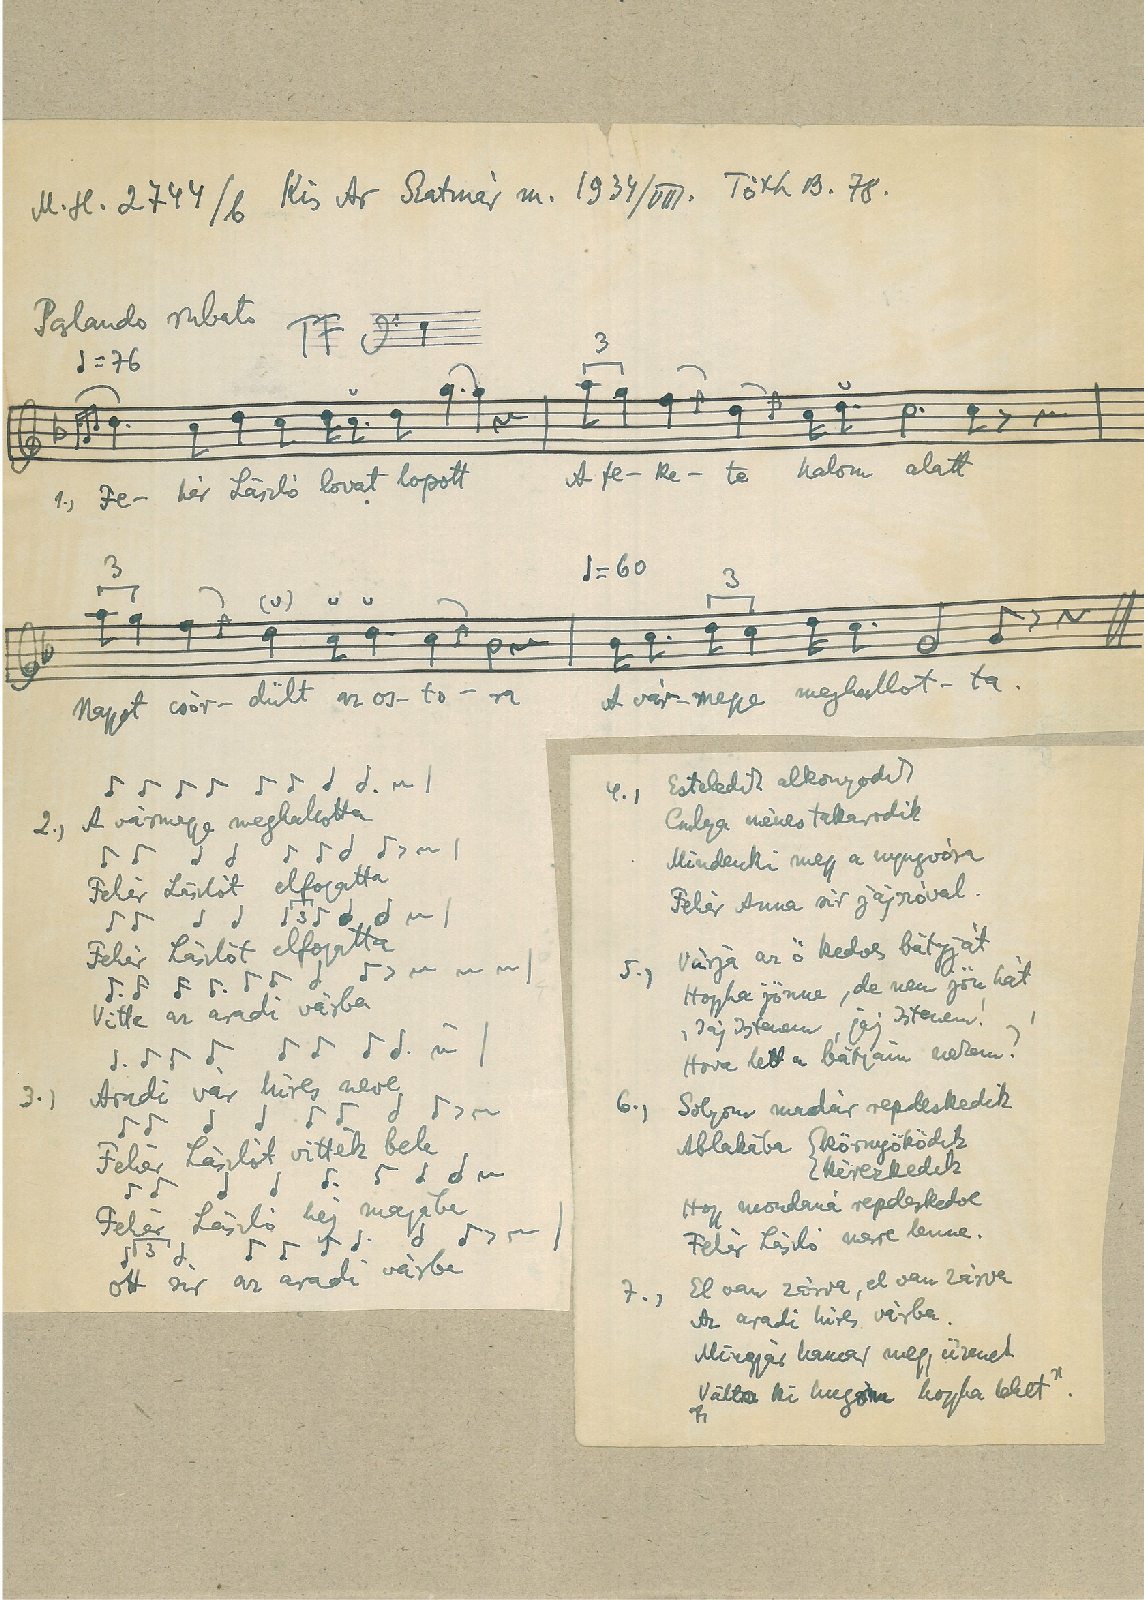 M.H. 2744/b Kis Ar Szatmár m. 1934/VIII. Tóth B. 78.
Parlando rubato TF
♩=76
3
1., Fe- hér László lovat lopott A fe- ke- te halom alatt
3 (∪) ♩=60 3
Nagyot csör- dült az os- to- ra A vár- megye meghallot- ta.
2., A vármegye meghallotta
Fehér Lászlót elfogatta
3
Fehér Lászlót elfogatta
Vitte az aradi várba
3., Aradi vár híres neve,
Fehér Lászlót vitték bele
Fehér László héj magába
3
Ott sír az aradi várba
4., Esteledik alkonyodik
Csulya ménes takarodik
Mindenki megy a nyugvóra
Fehér Anna sír jajszóval.
5., Várja az ő kedves bátyját
Hogyha jönne, de nem jön hát
"Jaj Istenem, jaj Istenem!
Hova lett a bátyám nékem?"
6., Sólyom madár repdeskedik
Ablakába {környöködik
{kérezkedik
Hogy mondaná repdeskedve
Fehér László merre lenne.
7., El van zárva, el van zárva
Az aradi híres várba.
Mingyár hamar megy üzenet
Váltsa ki hugom hogyha lehet x.